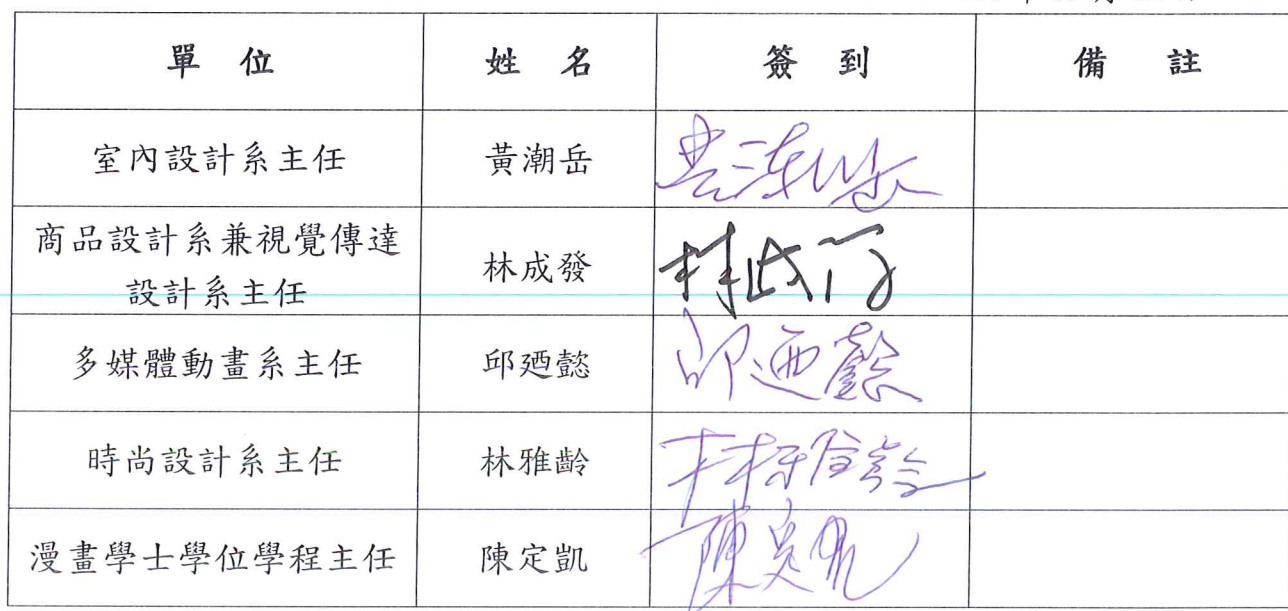 單位 姓名 簽到 備註
室內設計系主任 黃潮岳 黃潮岳
商品設計系兼視覺傳達
設計系主任 林成發 林成發
多媒體動畫系主任 邱廼懿 邱廼懿
時尚設計系主任 林雅齡 林雅齡
漫畫學士學位學程主任 陳定凱 陳定凱